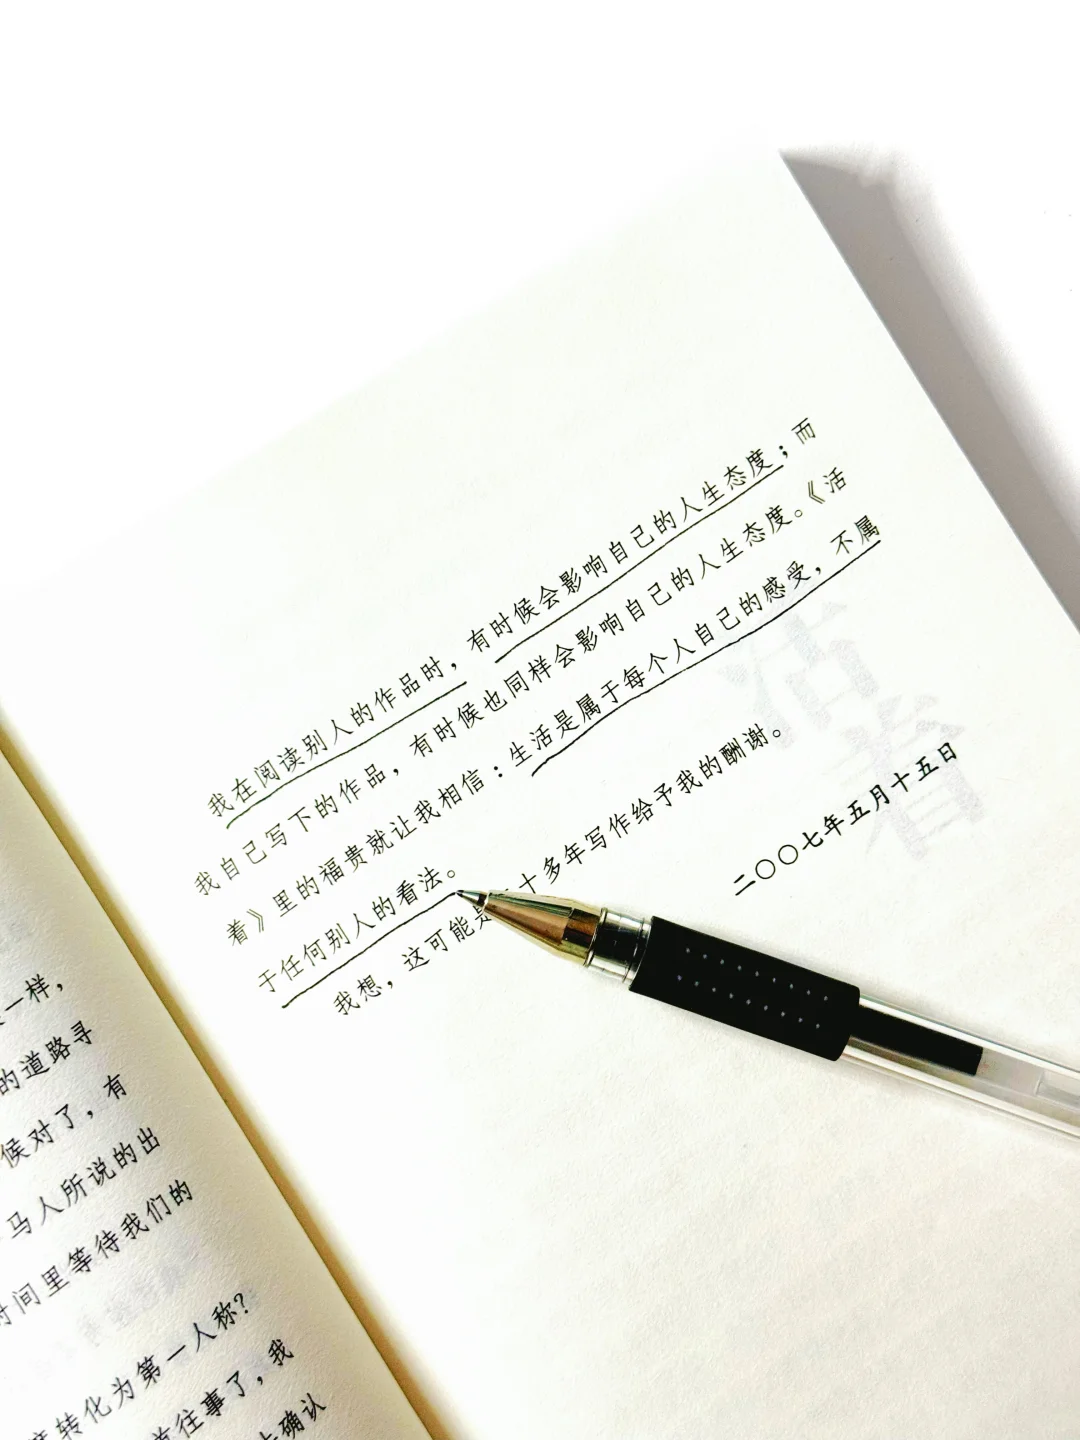 一样，
的道路寻
候对了，有
马人所说的出
时间里等待我们的
转化为第一人称？
往事了，我
确认
我在阅读别人的作品时，有时候会影响自己的人生态度；而
我自己写下的作品，有时候也同样会影响自己的人生态度。《活
着》里的福贵就让我相信：生活是属于每个人自己的感受，不属
于任何别人的看法。
我想，这可能是十多年写作给予我的酬谢。
二〇〇七年五月十五日
活着